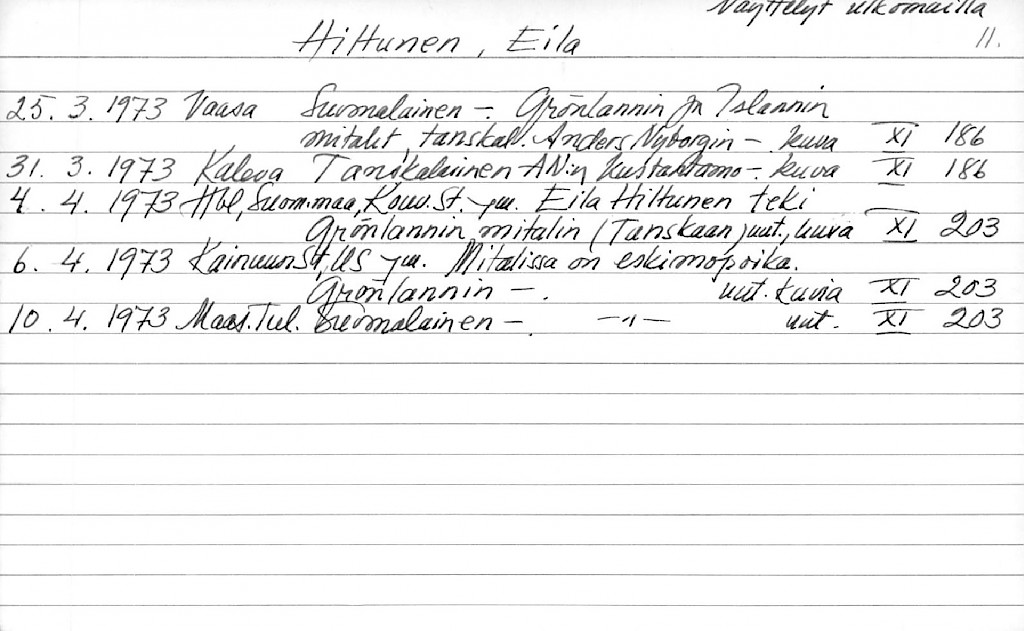 Näyttelyt ulkomailla
Hiltunen, Eila 11.
25. 3. 1973 Vaasa Suomalainen –. Grönlannin ja Islannin
mitalit, tanskal. Anders Nyborgin –. kuva XI 186
31. 3. 1973 Kaleva Tanskalainen AN:n kustantamo –. kuva XI 186
4. 4. 1973 Hbl, Suom.maa, Kouv.St. ym. Eila Hiltunen teki
Grönlannin mitalin (Tanskaan) uut., kuva XI 203
6. 4. 1973 KainuunS, US ym. Mitalissa on eskimopoika.
Grönlannin –. uut. kuvia XI 203
10. 4. 1973 Maas.Tul. Suomalainen –. –"– uut. XI 203